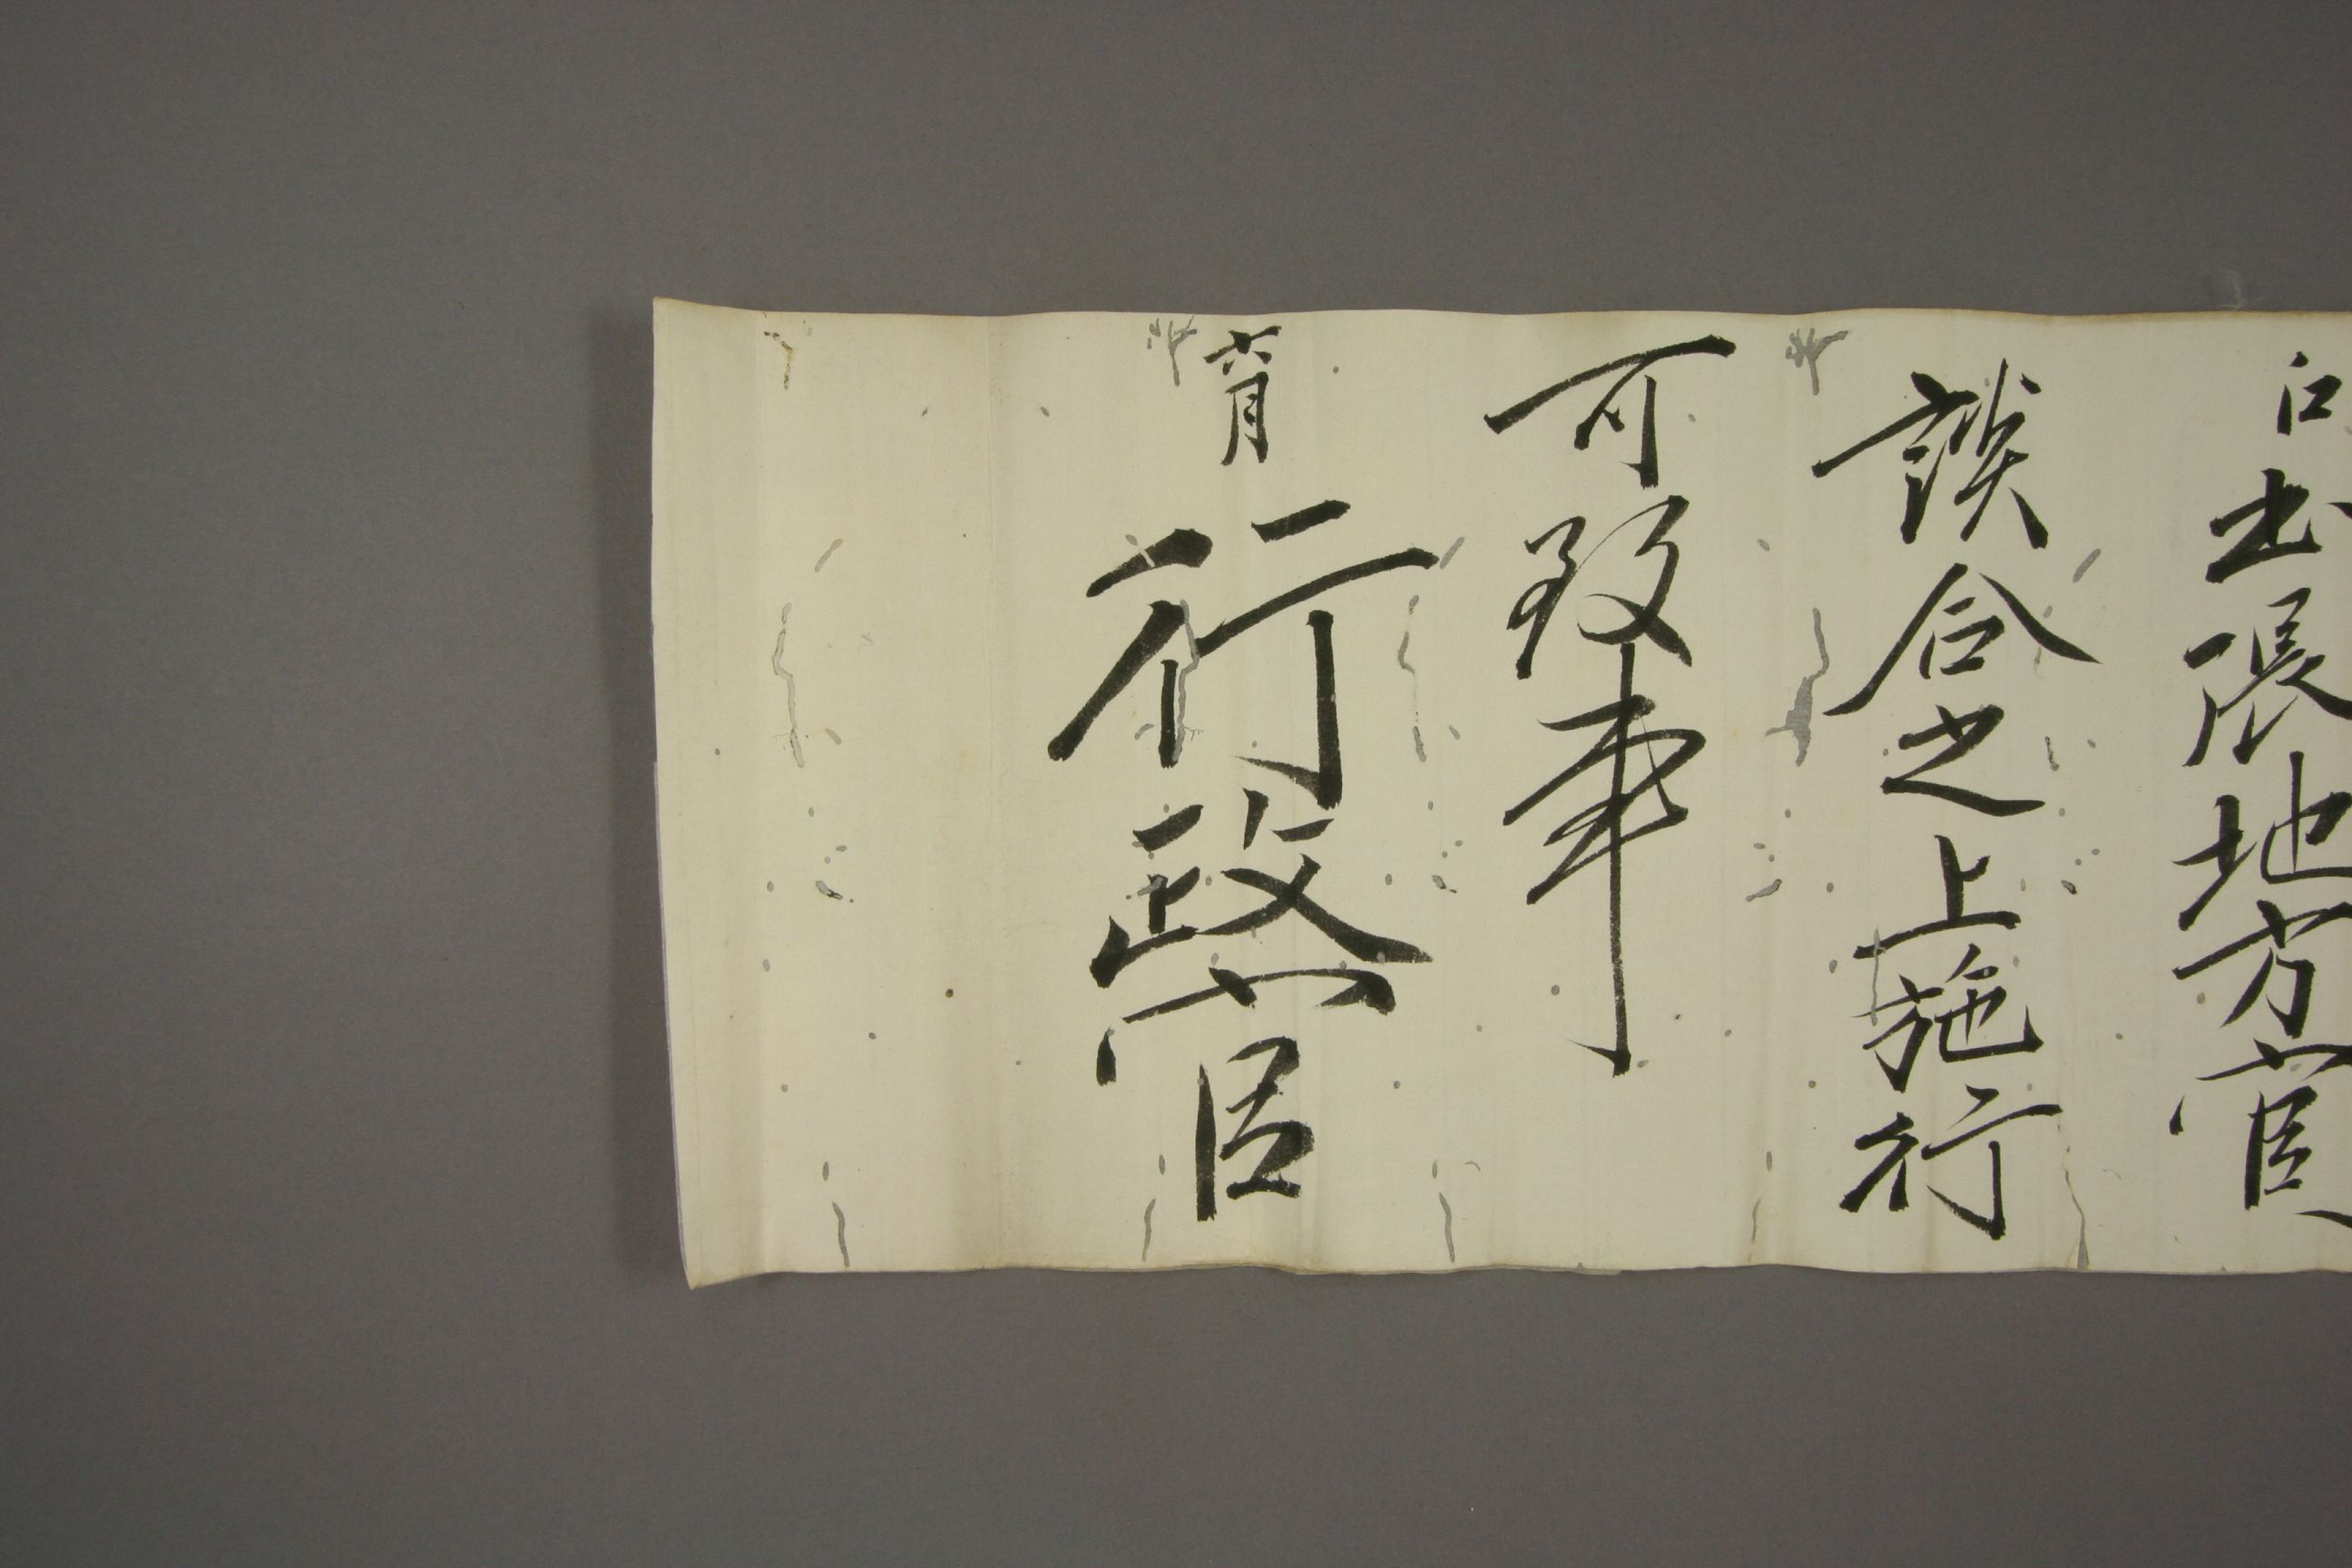 口出張地方官
談合之上施行
可致事
六月 行政官